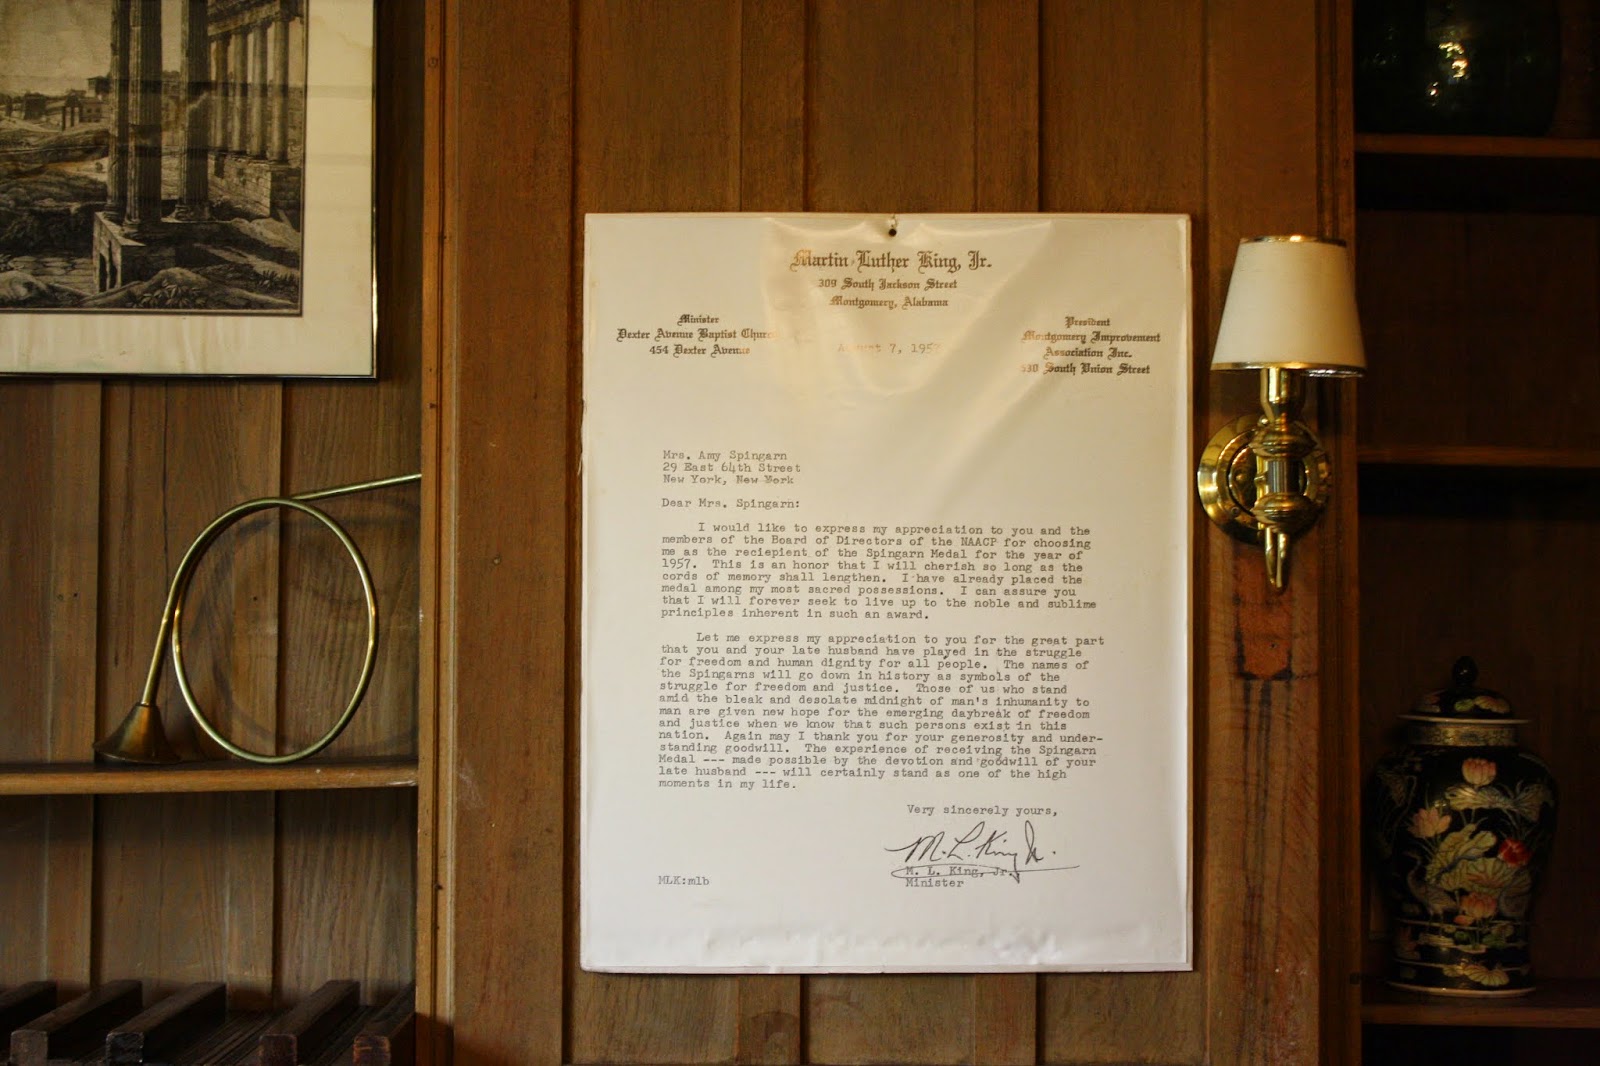 Martin Luther King, Jr.
309 South Jackson Street
Montgomery, Alabama
Minister
Dexter Avenue Baptist Church
454 Dexter Avenue
President
Montgomery Improvement
Association Inc.
530 South Union Street
August 7, 1957
Mrs. Amy Spingarn
29 East 64th Street
New York, New York
Dear Mrs. Spingarn:
I would like to express my appreciation to you and the
members of the Board of Directors of the NAACP for choosing
me as the reciepient of the Spingarn Medal for the year of
1957. This is an honor that I will cherish so long as the
cords of memory shall lengthen. I have already placed the
medal among my most sacred possessions. I can assure you
that I will forever seek to live up to the noble and sublime
principles inherent in such an award.
Let me express my appreciation to you for the great part
that you and your late husband have played in the struggle
for freedom and human dignity for all people. The names of
the Spingarns will go down in history as symbols of the
struggle for freedom and justice. Those of us who stand
amid the bleak and desolate midnight of man's inhumanity to
man are given new hope for the emerging daybreak of freedom
and justice when we know that such persons exist in this
nation. Again may I thank you for your generosity and under-
standing goodwill. The experience of receiving the Spingarn
Medal --- made possible by the devotion and goodwill of your
late husband --- will certainly stand as one of the high
moments in my life.
Very sincerely yours,
M. L. King Jr.
M. L. King, Jr.
Minister
MLK:mlb